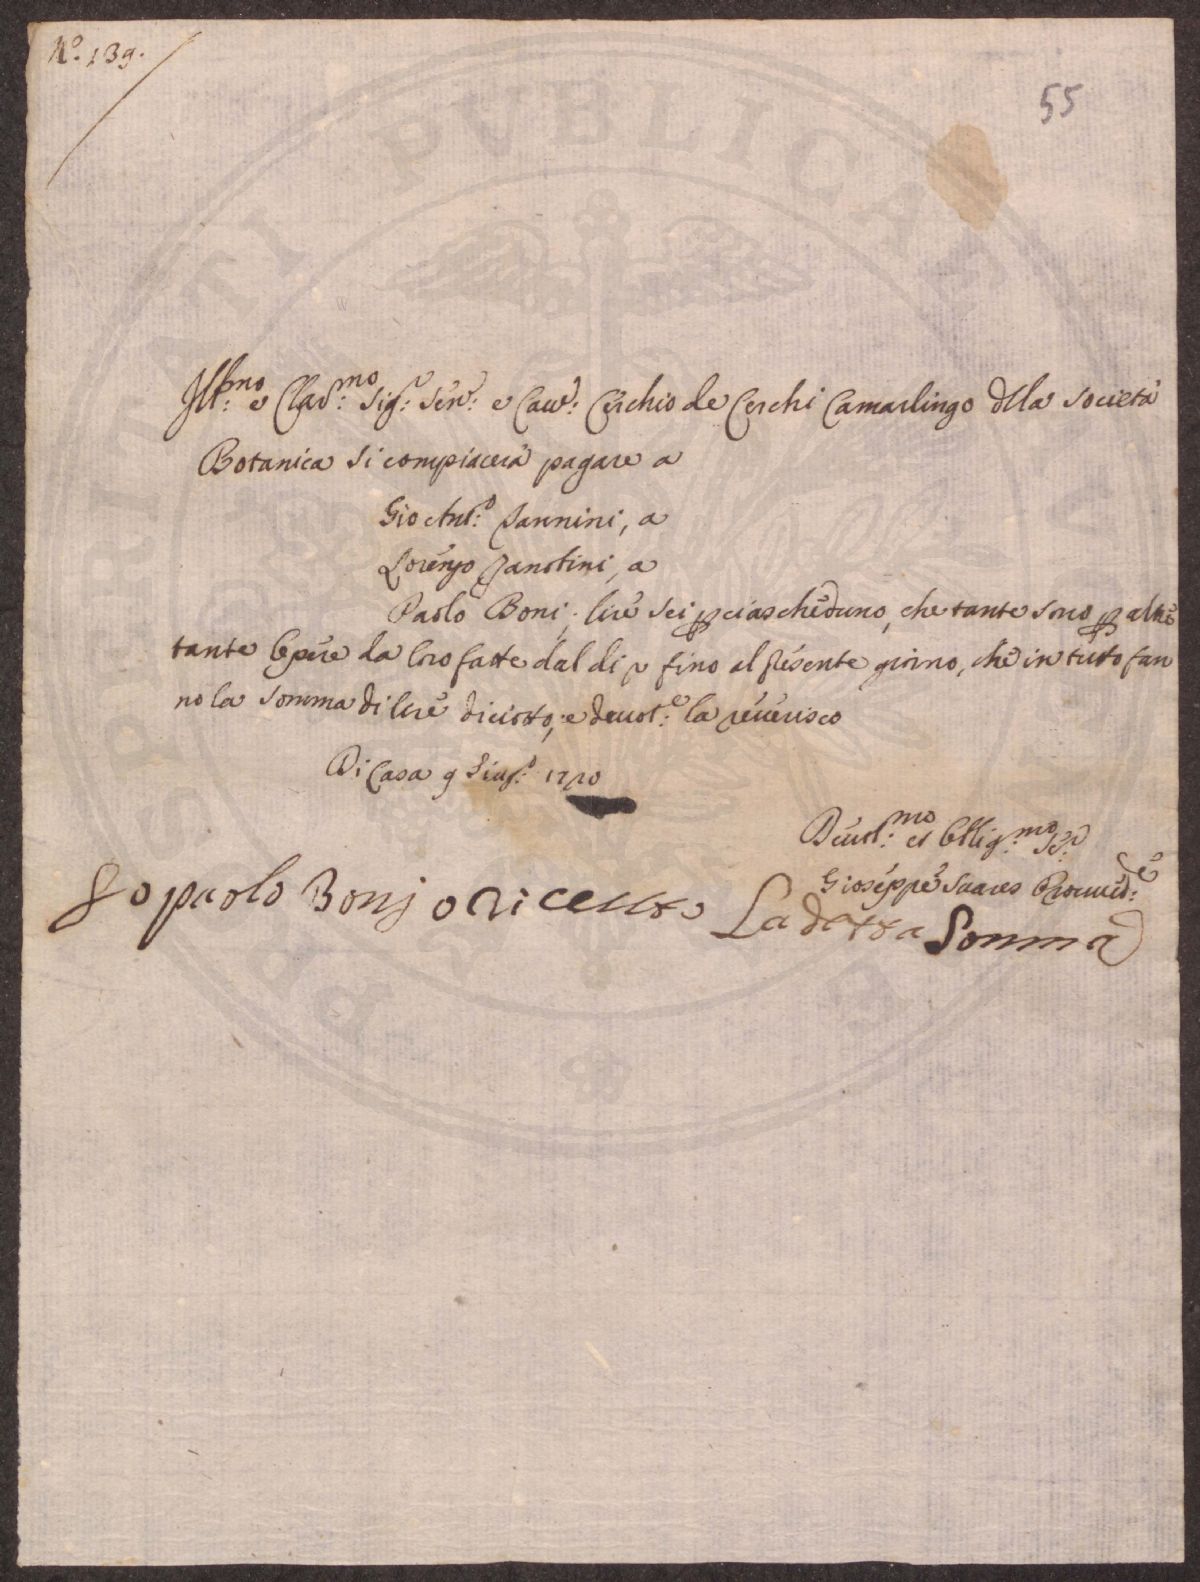 N.º 139.
55
Ill.mo e Clar.mo Sig.r Sen.r e Cav.r Cerchio de Cerchi Camarlingo della Società
Botanica si compiacerà pagare a
Gio Ant.o Vannini, a
Lorenzo Zanobini, a
Paolo Boni, lire sei p ciascheduno, che tante sono p altre
tante opere da loro fatte dal di p fino al presente giorno, che in tutto fan
no la somma di lire diciotto, e devot.e la reverisco
Di Casa 9 Giug.o 1720
Devot.mo et Obblig.mo Se.r
Giuseppe Suares Proved.e
Io paolo Bonj o riceuto La detta Somma
PVBLICAE